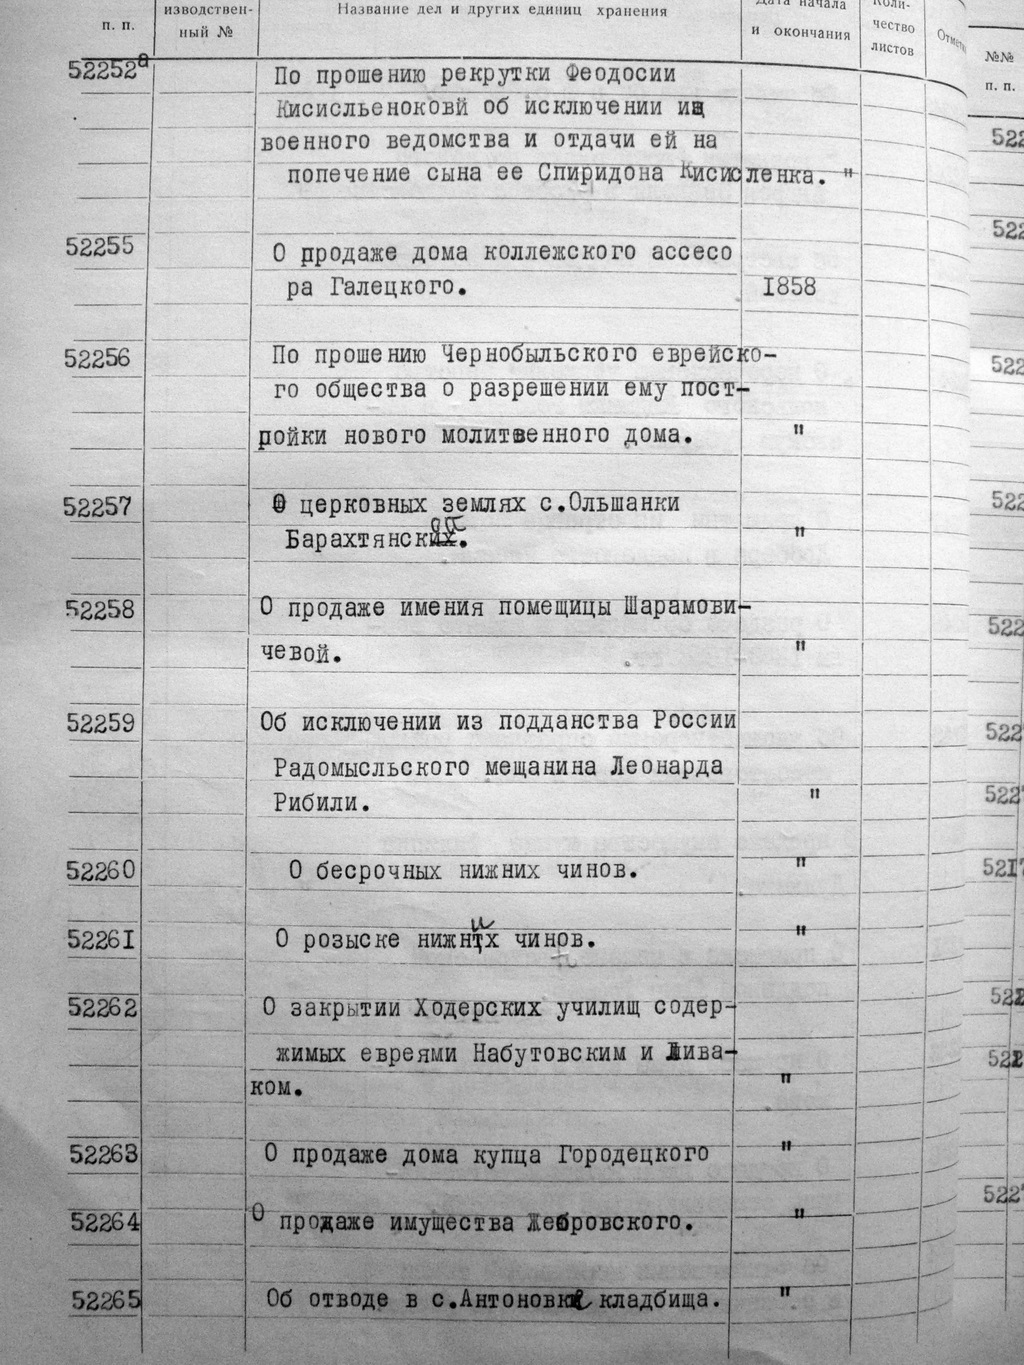 п. п.
изводствен-
ный №
Название дел и других единиц хранения
Дата начала
и окончания
Коли-
чество
листов
№№
п. п.
52252а
По прошению рекрутки Феодосии
Кисисльеноковй об исключении из
военного ведомства и отдачи ей на
попечение сына ее Спиридона Кисисленка. "
52255
О продаже дома коллежского ассесо
ра Галецкого. 1858
52256
По прошению Чернобыльского еврейско-
го общества о разрешении ему пост-
ройки нового молитвенного дома. "
52257
О церковных землях с.Ольшанки
Барахтянской. "
52258
О продаже имения помещицы Шарамови-
чевой. "
52259
Об исключении из подданства России
Радомысльского мещанина Леонарда
Рибили. "
52260
О бесрочных нижних чинов. "
52261
О розыске нижних чинов. "
52262
О закрытии Ходерских училищ содер-
жимых евреями Набутовским и Лива-
ком. "
52263
О продаже дома купца Городецкого "
52264
О продаже имущества Жебровского. "
52265
Об отводе в с.Антоновке кладбища. "